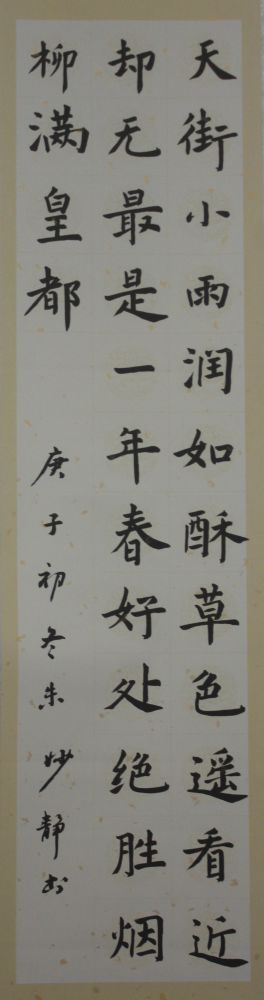 天街小雨润如酥草色遥看近
却无最是一年春好处绝胜烟
柳满皇都
庚子初冬朱妙静书